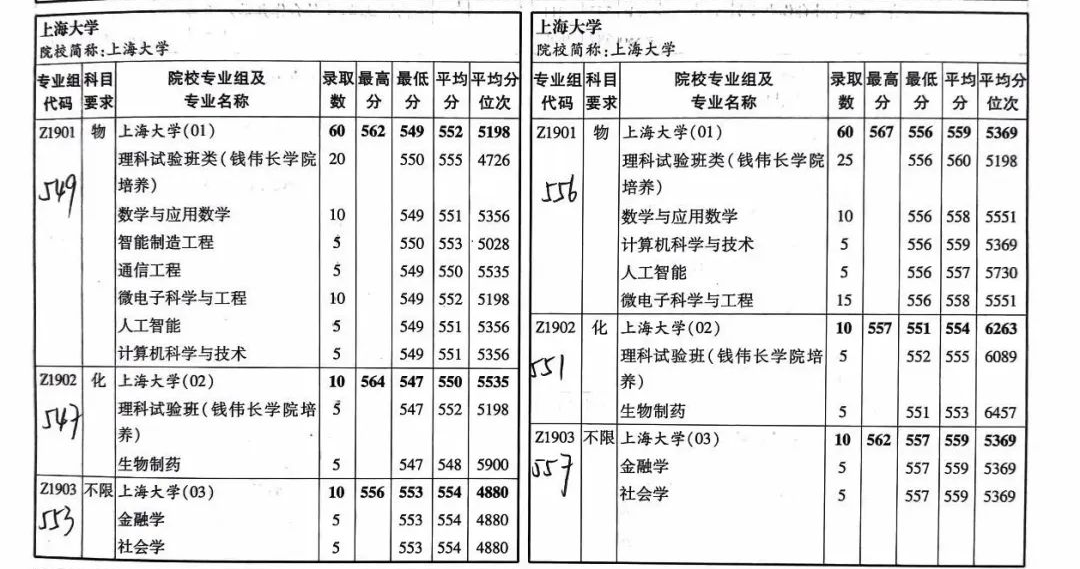 上海大学
院校简称:上海大学
专业组 科目 院校专业组及 录取 最高 最低 平均 平均分
代码 要求 专业名称 数 分 分 分 位次
Z1901 物 上海大学(01) 60 562 549 552 5198
理科试验班类(钱伟长学院 20 550 555 4726
培养)
549
数学与应用数学 10 549 551 5356
智能制造工程 5 550 553 5028
通信工程 5 549 550 5535
微电子科学与工程 10 549 552 5198
人工智能 5 549 551 5356
计算机科学与技术 5 549 551 5356
Z1902 化 上海大学(02) 10 564 547 550 5535
理科试验班(钱伟长学院培 5 547 552 5198
547 养)
生物制药 5 547 548 5900
Z1903 不限 上海大学(03) 10 556 553 554 4880
553 金融学 5 553 554 4880
社会学 5 553 554 4880
上海大学
院校简称:上海大学
专业组 科目 院校专业组及 录取 最高 最低 平均 平均分
代码 要求 专业名称 数 分 分 分 位次
Z1901 物 上海大学(01) 60 567 556 559 5369
理科试验班类(钱伟长学院 25 556 560 5198
556 培养)
数学与应用数学 10 556 558 5551
计算机科学与技术 5 556 559 5369
人工智能 5 556 557 5730
微电子科学与工程 15 556 558 5551
Z1902 化 上海大学(02) 10 557 551 554 6263
551 理科试验班(钱伟长学院培 5 552 555 6089
养)
生物制药 5 551 553 6457
Z1903 不限 上海大学(03) 10 562 557 559 5369
557 金融学 5 557 559 5369
社会学 5 557 559 5369